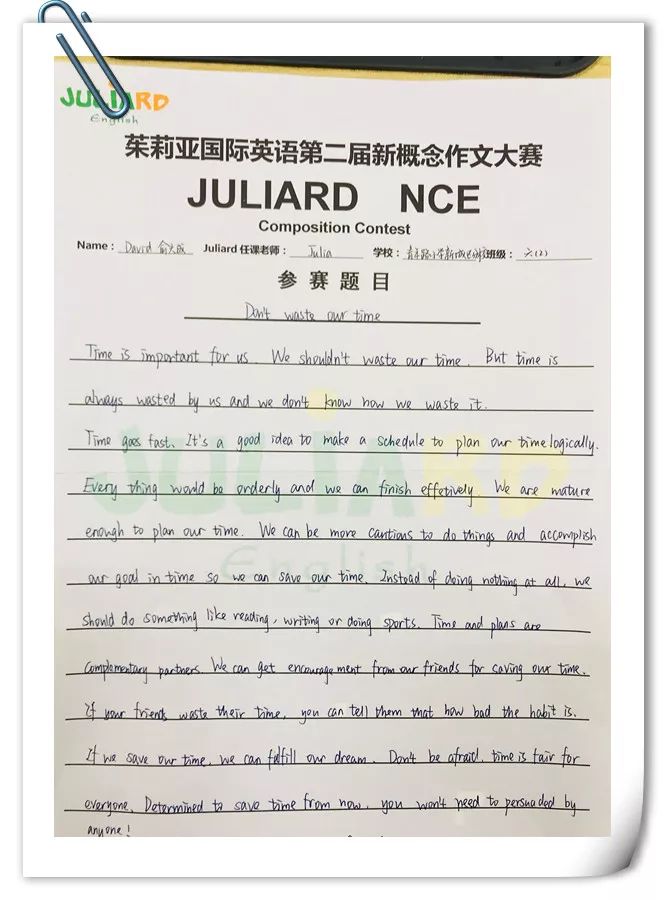 JULIARD
English
茱莉亚国际英语第二届新概念作文大赛
JULIARD NCE
Composition Contest
Name: David 俞天成 Juliard 任课老师: Julia 学校: 班级: 六(2)
参赛题目
Don't waste our time
Time is important for us. We shouldn't waste our time. But time is
always wasted by us and we don't know how we waste it.
Time goes fast. It's a good idea to make a schedule to plan our time logically.
Every thing would be orderly and we can finish effetively. We are mature
enough to plan our time. We can be more cautions to do things and accomplish
our goal in time so we can save our time. Instead of doing nothing at all, we
should do something like reading, writing or doing sports. Time and plans are
complementary partners. We can get encouragement from our friends for saving our time.
If your friends waste their time, you can tell them that how bad the habit is.
If we save our time, we can fulfill our dream. Don't be afraid, time is fair for
everyone. Determined to save time from now, you won't need to persuaded by
anyone!
JULIARD
English